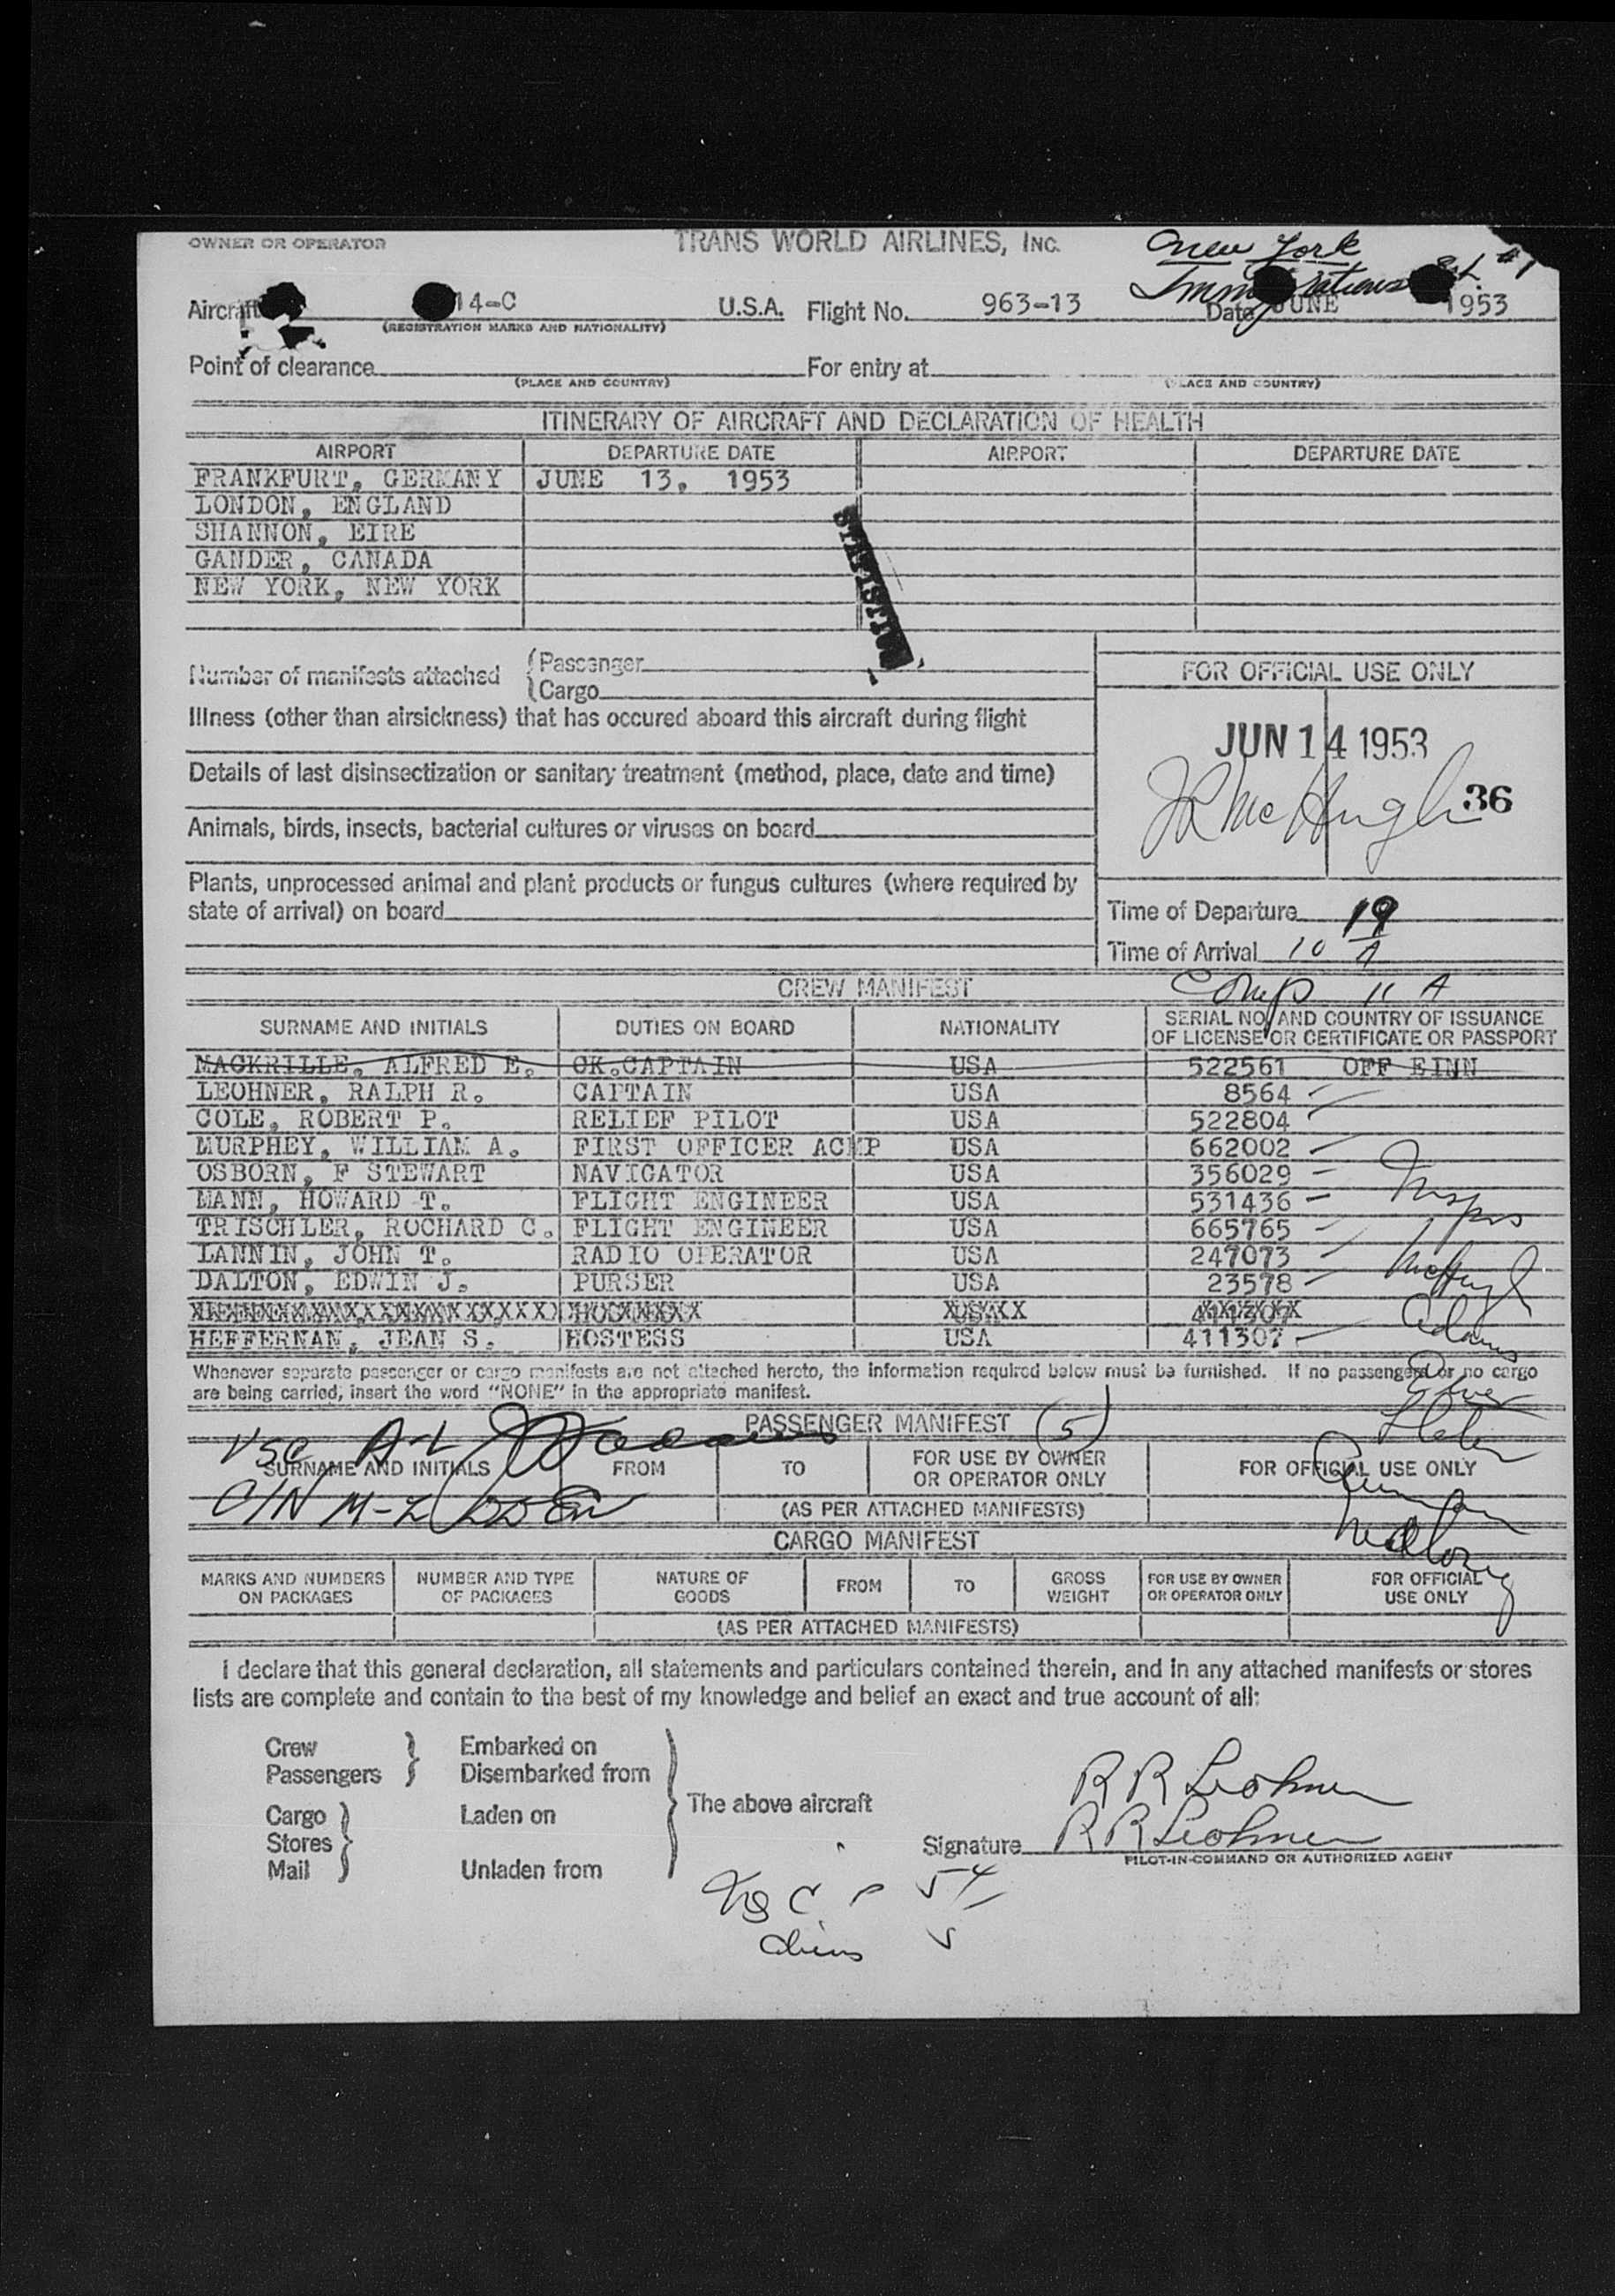 OWNER OR OPERATOR TRANS WORLD AIRLINES, INC. New York
Aircraft 14-C U.S.A. Flight No. 963-13 Date JUNE 1953
(REGISTRATION MARKS AND NATIONALITY)
Point of clearance For entry at
(PLACE AND COUNTRY) (PLACE AND COUNTRY)
ITINERARY OF AIRCRAFT AND DECLARATION OF HEALTH
AIRPORT DEPARTURE DATE AIRPORT DEPARTURE DATE
FRANKFURT, GERMANY JUNE 13, 1953
LONDON, ENGLAND
SHANNON, EIRE
GANDER, CANADA
NEW YORK, NEW YORK
Number of manifests attached (Passenger
(Cargo
FOR OFFICIAL USE ONLY
Illness (other than airsickness) that has occured aboard this aircraft during flight
JUN 14 1953
Details of last disinsectization or sanitary treatment (method, place, date and time)
McHugh 36
Animals, birds, insects, bacterial cultures or viruses on board
Plants, unprocessed animal and plant products or fungus cultures (where required by
state of arrival) on board
Time of Departure 19
Time of Arrival 10 A
CREW MANIFEST Comp 11 A
SURNAME AND INITIALS DUTIES ON BOARD NATIONALITY SERIAL NO. AND COUNTRY OF ISSUANCE
OF LICENSE OR CERTIFICATE OR PASSPORT
MACKRILLE, ALFRED E. CK.CAPTAIN USA 522561 OFF EINN
LEOHNER, RALPH R. CAPTAIN USA 8564
COLE, ROBERT P. RELIEF PILOT USA 522804
MURPHEY, WILLIAM A. FIRST OFFICER ACMP USA 662002
OSBORN, F STEWART NAVIGATOR USA 356029
MANN, HOWARD T. FLIGHT ENGINEER USA 531436
TRISCHLER, ROCHARD C. FLIGHT ENGINEER USA 665765
LANNIN, JOHN T. RADIO OPERATOR USA 247073
DALTON, EDWIN J. PURSER USA 23578
HEFFERNAN, JEAN S. HOSTESS USA 411307
Insprs
McHugh
Adams
Whenever separate passenger or cargo manifests are not attached hereto, the information required below must be furnished. If no passengers or no cargo
are being carried, insert the word "NONE" in the appropriate manifest.
PASSENGER MANIFEST (5)
USC A-L
SURNAME AND INITIALS FROM TO FOR USE BY OWNER
OR OPERATOR ONLY FOR OFFICIAL USE ONLY
C/N M-Z
(AS PER ATTACHED MANIFESTS)
CARGO MANIFEST
MARKS AND NUMBERS
ON PACKAGES NUMBER AND TYPE
OF PACKAGES NATURE OF
GOODS FROM TO GROSS
WEIGHT FOR USE BY OWNER
OR OPERATOR ONLY FOR OFFICIAL
USE ONLY
(AS PER ATTACHED MANIFESTS)
I declare that this general declaration, all statements and particulars contained therein, and in any attached manifests or stores
lists are complete and contain to the best of my knowledge and belief an exact and true account of all:
Crew Embarked on
Passengers Disembarked from
The above aircraft
Cargo Laden on
Stores
Mail Unladen from
R R Leohner
Signature R R Leohner
PILOT-IN-COMMAND OR AUTHORIZED AGENT
54
5